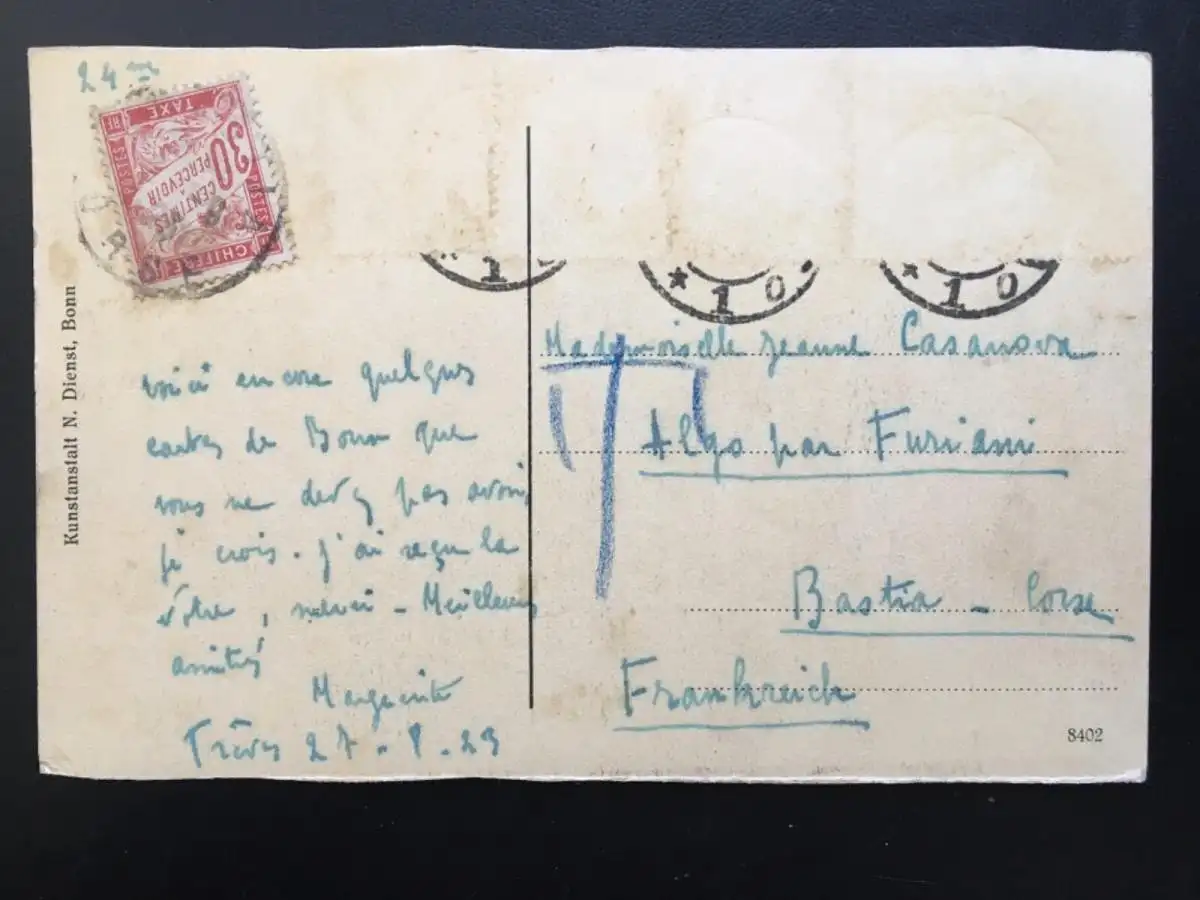 24me
POSTES
30
CENTIMES
À
PERCEVOIR
CHIFFRE
TAXE
POSTES
Kunstanstalt N. Dienst, Bonn
voici encore quelques
cartes de Bonn que
vous ne devez pas avoir,
je crois. J'ai reçu la
vôtre, merci - Meilleures
amitiés
Marguerite
Trèves 27-8-23
* 1 0
* 1 0
* 1 0
T
Mademoiselle Jeanne Casanova
Algo par Furiani
Bastia - Corse
Frankreich
8402